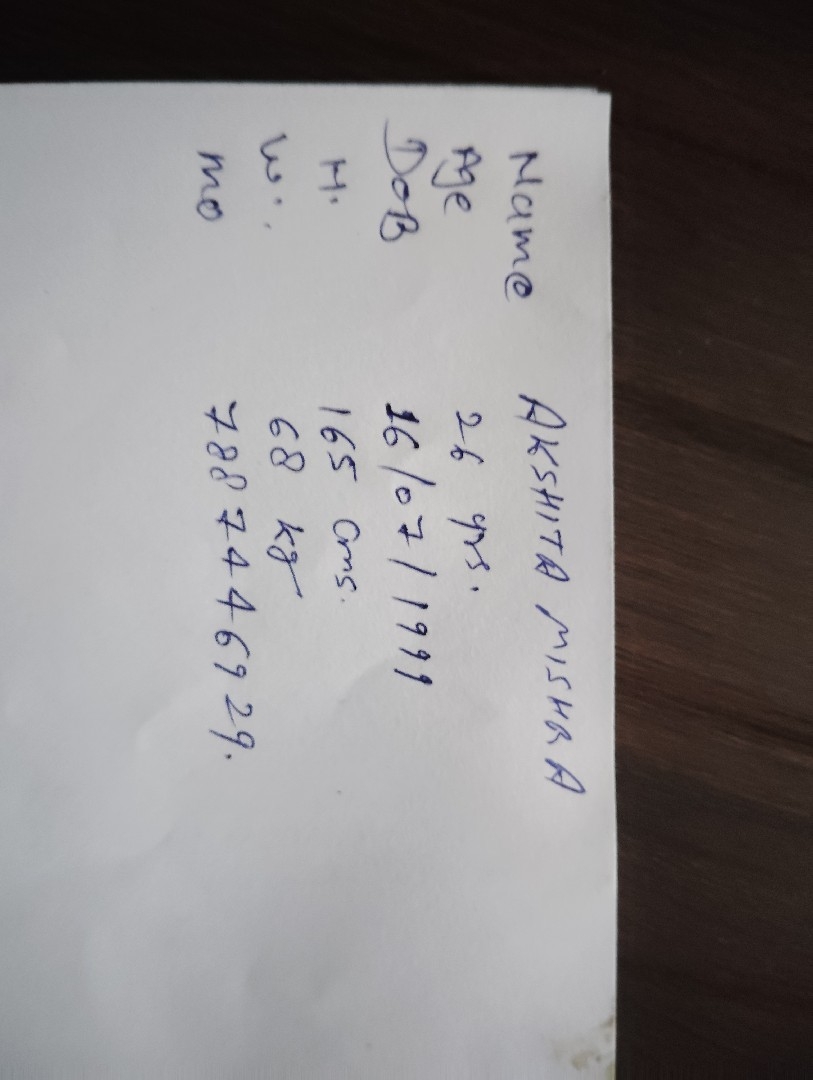 Name AKSHITA MISHRA
Age 26 yrs.
DOB 16/07/1999
H. 165 cms.
W.. 68 kg
mo 7887446929.